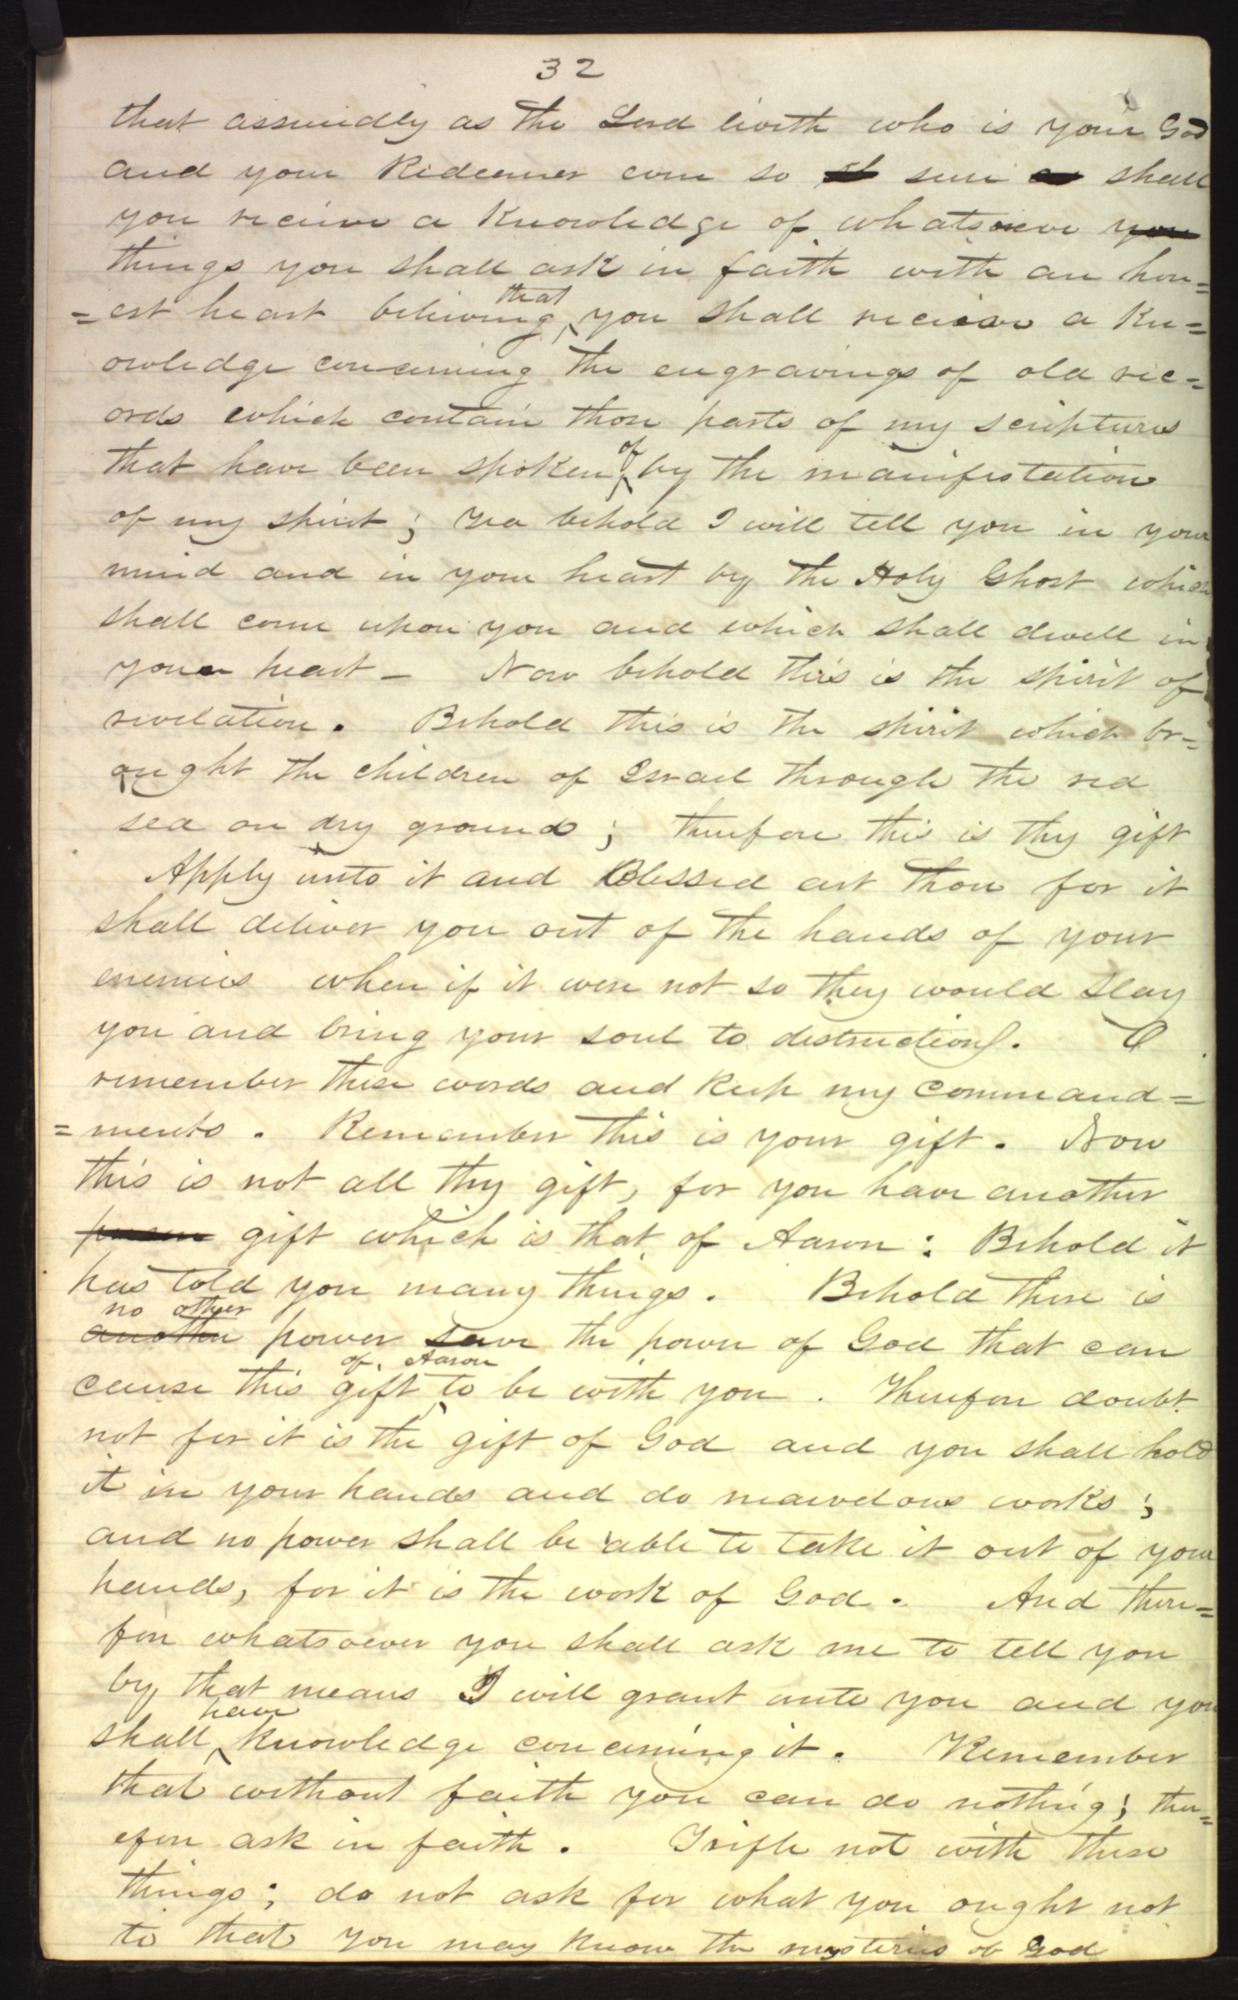 32
that assuridly as the Lord liveth who is your God
and your Redeemer even so sure shall
you recieve a Knowledge of whatsoever you
things you shall ask in faith with an hon=
=est heart believing that you shall recieve a Kn=
owledge concerning the engravings of old rec=
ords which contain those parts of my scriptures
that have been spoken of by the manifestation
of my spirit; yea behold I will tell you in your
mind and in your heart by the Holy Ghost which
shall come upon you and which shall dwell in
your heart – Now behold this is the spirit of
revelation. Behold this is the spirit which br=
ought the children of Israel through the red
sea on dry ground; therefore this is thy gift
Apply unto it and Blessed art thou for it
shall deliver you out of the hands of your
enemies when if it were not so they would slay
you and bring your soul to distruction. O
remember these words and keep my command=
=ments. Remember this is your gift. Now
this is not all thy gift, for you have another
gift which is that of Aaron: Behold it
has told you many things. Behold there is
no other
another power save the power of God that can
cause this gift of Aaron to be with you. Therefore doubt
not for it is the gift of God and you shall hold
it in your hands and do marvelous works;
and no power shall be able to take it out of your
hands, for it is the work of God. And there=
fore whatsoever you shall ask me to tell you
by that means I will grant unto you and you
shall have knowledge concerning it. Remember
that without faith you can do nothing; ther=
efore ask in faith. Trifle not with these
things; do not ask for what you ought not
to that you may know the mysteries of God